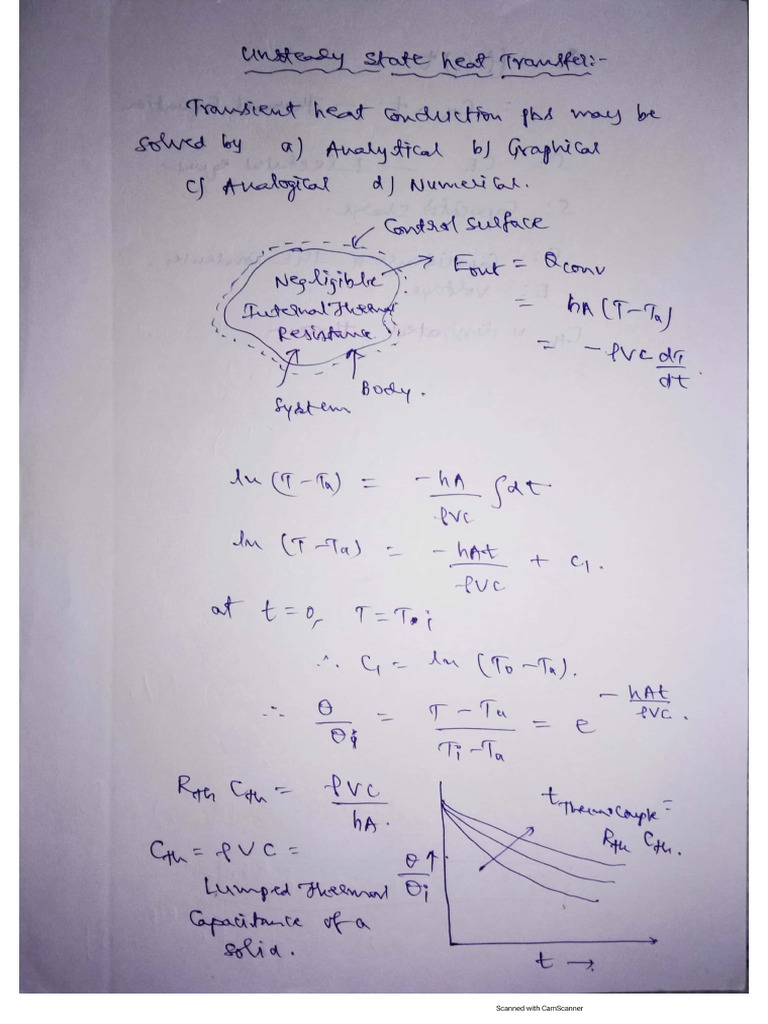 Unsteady State heat Transfer:-
Transient heat conduction pbs may be
solved by a) Analytical b) Graphical
c) Analogical d) Numerical.
Control Surface
Negligible
Internal Thermal
Resistance
System
Body.
Eout = Qconv
= hA (T-Ta)
= -ρVC dT/dt.
ln (T-Ta) = -hA/ρVC ∫dt
ln (T-Ta) = -hAt/ρVC + C1.
at t=0, T=Ti
∴ C1 = ln (T0-Ta).
∴ θ/θi = T-Ta/Ti-Ta = e^-hAt/ρVC.
Rth Cth = ρVC/hA.
Cth = ρVC =
Lumped Thermal
Capacitance of a
solid.
θ/θi ↑
tThermocouple =
Rth Cth.
t →
Scanned with CamScanner